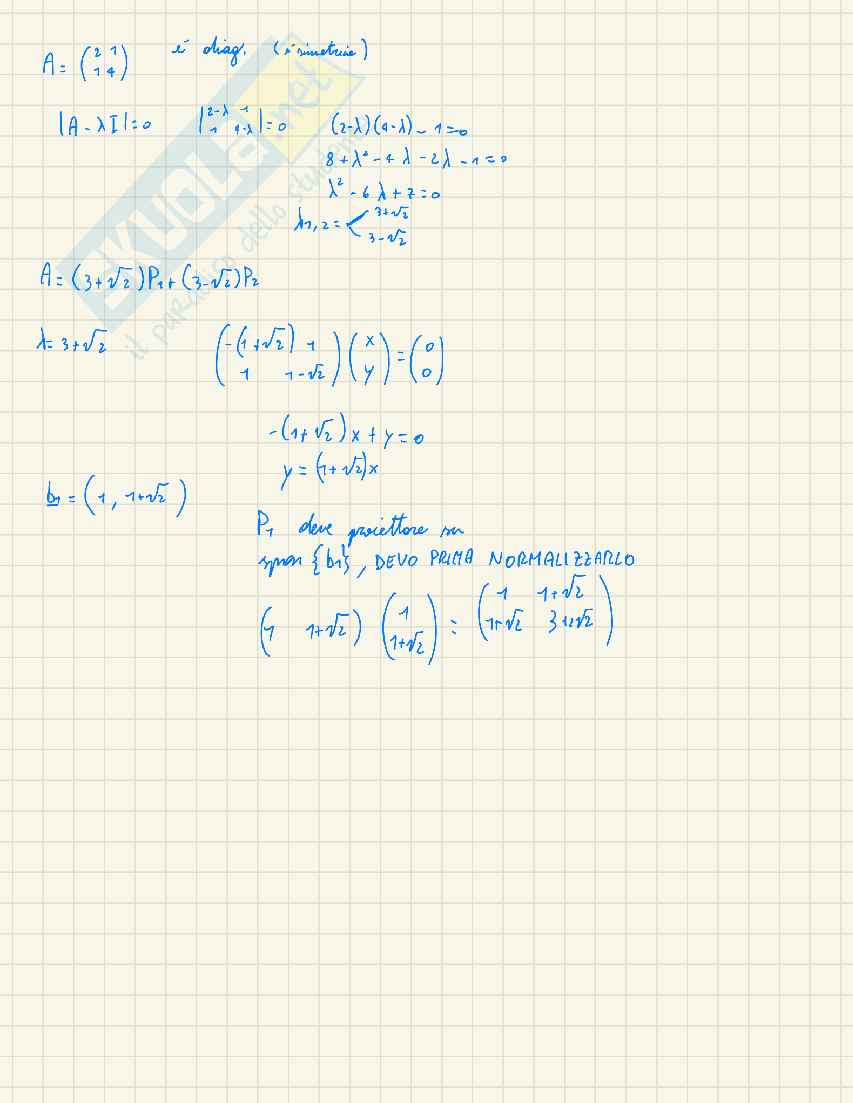 A = (2 1 / 1 4) è diag. (è simmetrica)
|A - λI| = 0 |2-λ 1 / 1 4-λ| = 0 (2-λ)(4-λ) - 1 = 0
8 + λ² - 4λ - 2λ - 1 = 0
λ² - 6λ + 7 = 0
λ1,2 = < 3+√2 / 3-√2
A = (3+√2)P1 + (3-√2)P2
λ = 3+√2 (-(1+√2) 1 / 1 1-√2)(x / y) = (0 / 0)
-(1+√2)x + y = 0
y = (1+√2)x
b1 = (1, 1+√2)
P1 deve proiettare su
span {b1}, DEVO PRIMA NORMALIZZARLO
(1 1+√2) (1 / 1+√2) = (1 1+√2 / 1+√2 3+2√2)
SKUOLA.net
il paradiso dello studente